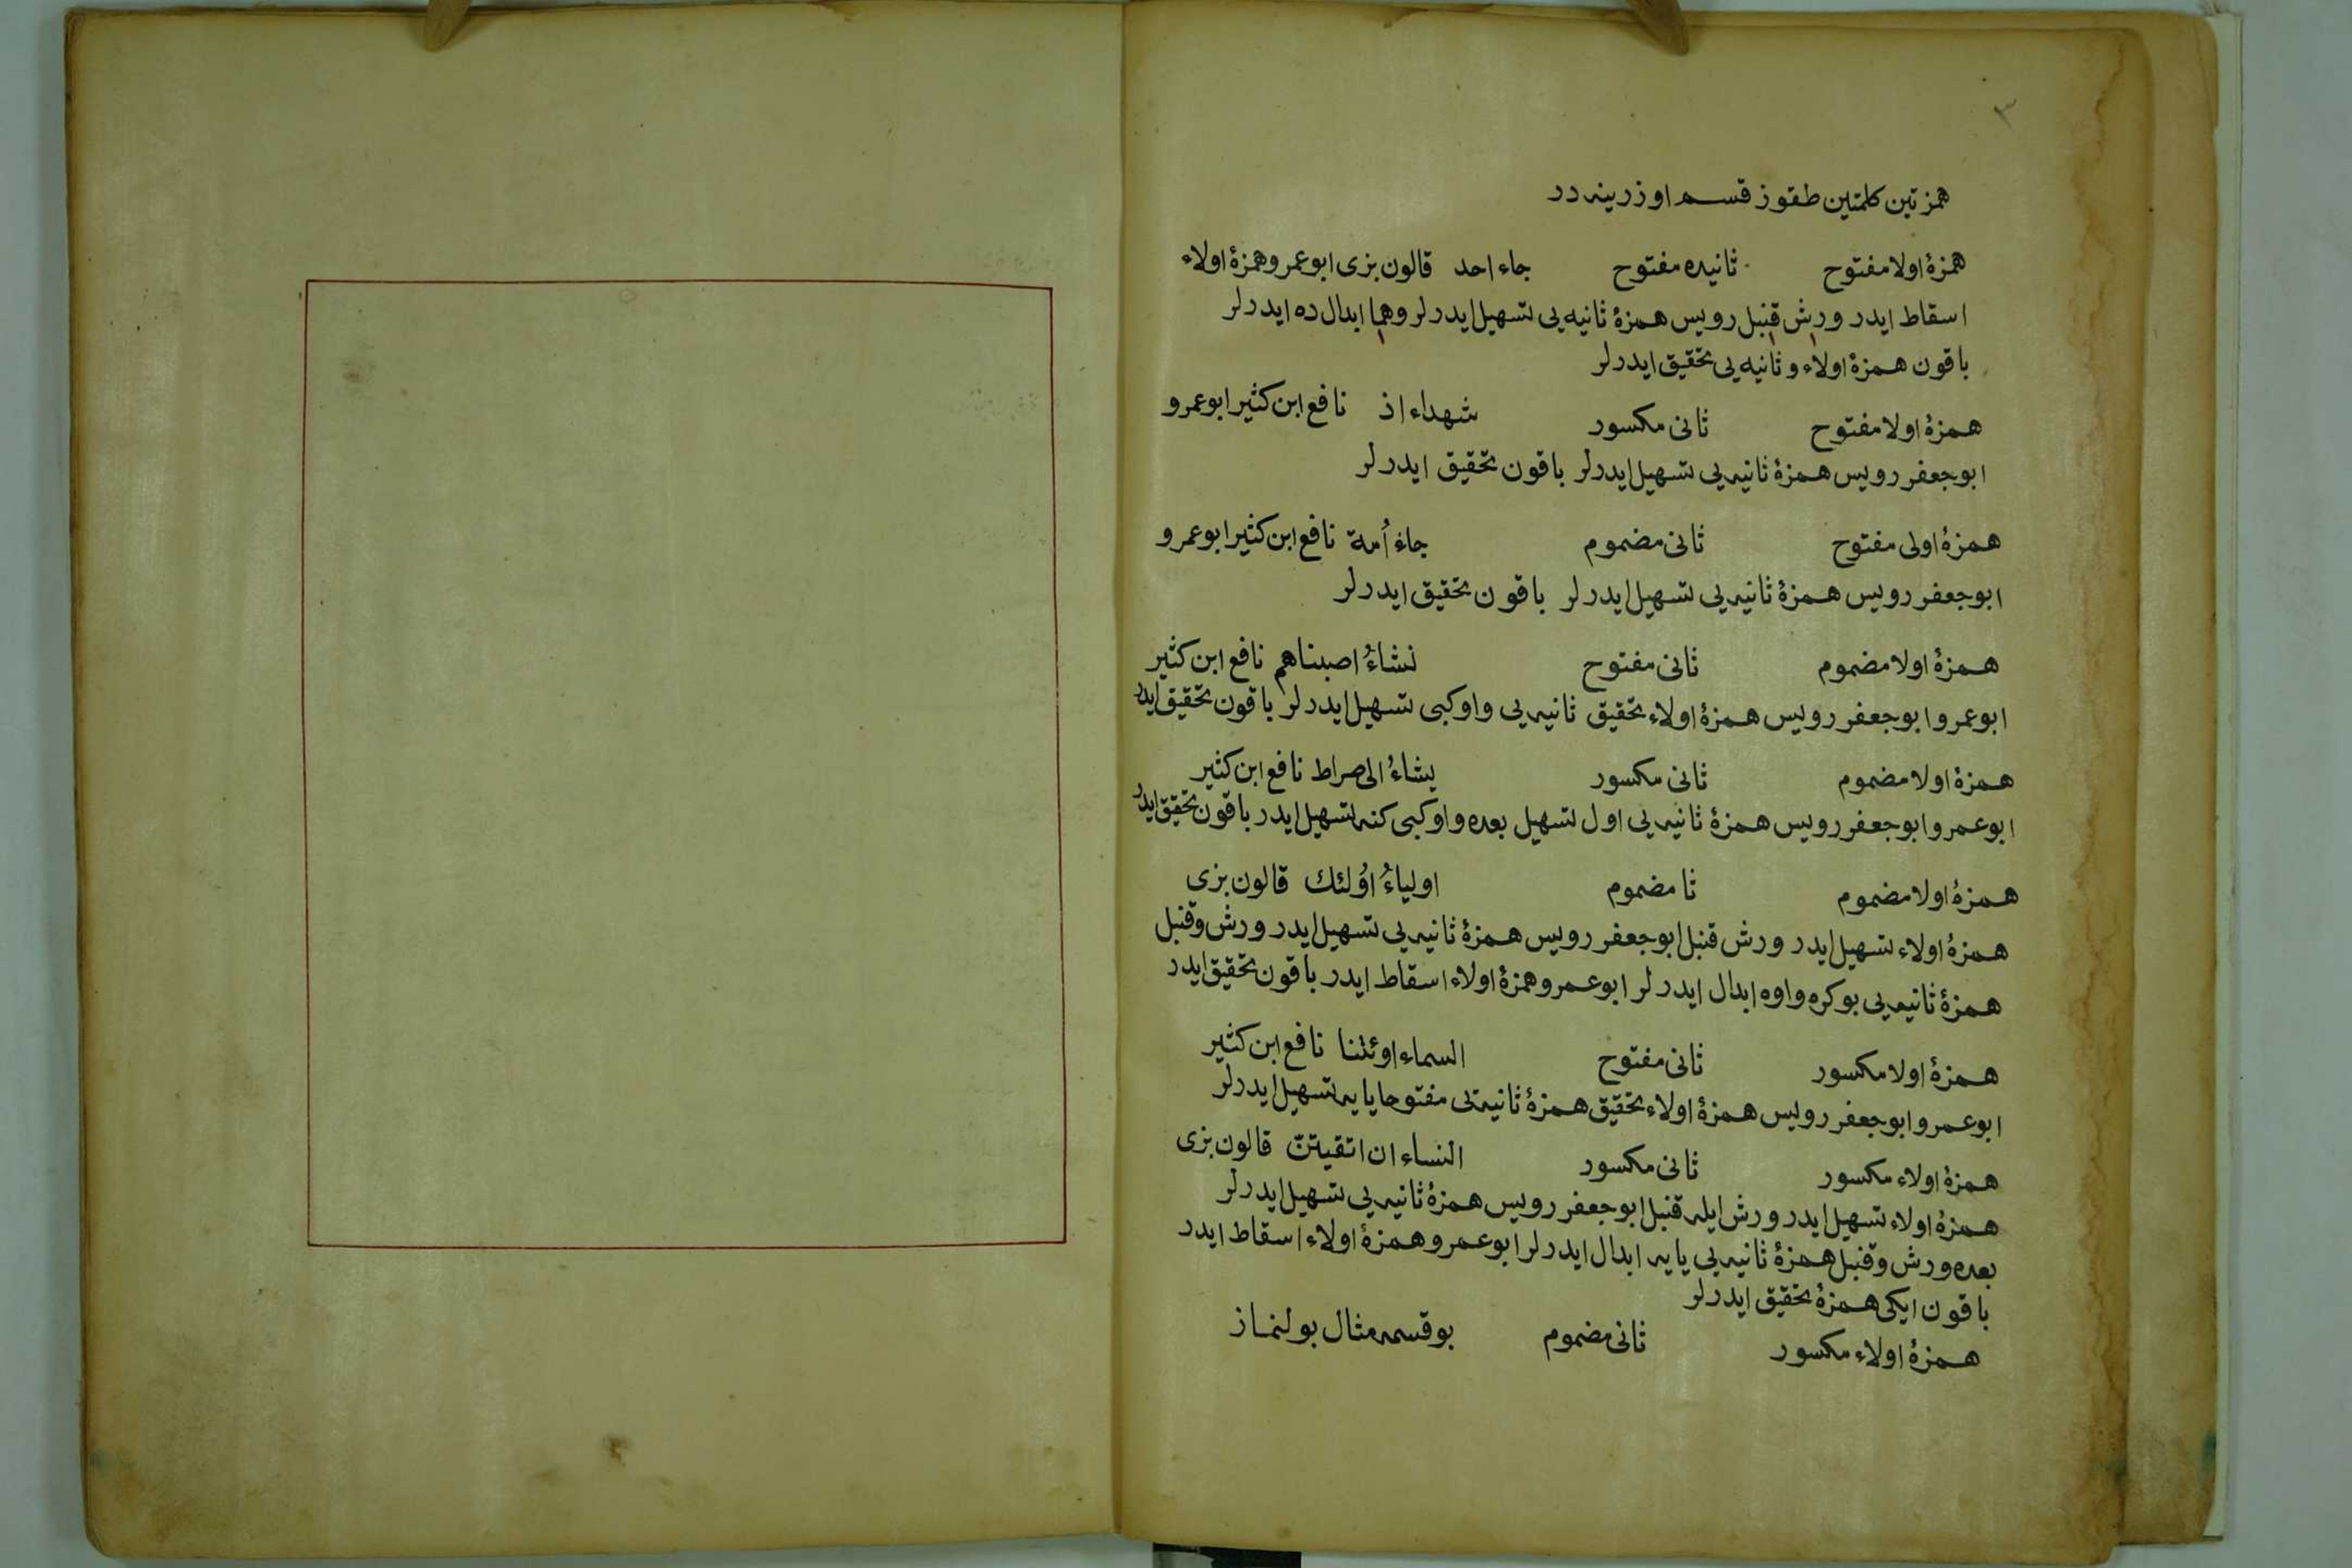 ٣
همزتين كلمتين طقوز قسم اوزرينه در
همزۀ اولا مفتوح ثانيه‌ده مفتوح جاء احد قالون بزى ابو عمرو همزۀ اولاء
اسقاط ايدر ورش قنبل رويس همزۀ ثانيه يى تسهيل ايدرلر وهما ابدال ده ايدرلر
باقون همزۀ اولاء و ثانيه يى تحقيق ايدرلر
همزۀ اولا مفتوح ثانى مكسور شهداء اذ نافع ابن كثير ابو عمرو
ابو جعفر رويس همزۀ ثانيه يى تسهيل ايدرلر باقون تحقيق ايدرلر
همزۀ اولى مفتوح ثانى مضموم جاء اُمة نافع ابن كثير ابو عمرو
ابو جعفر رويس همزۀ ثانيه يى تسهيل ايدرلر باقون تحقيق ايدرلر
همزۀ اولا مضموم ثانى مفتوح نشاءُ اصبناهم نافع ابن كثير
ابو عمرو ابو جعفر رويس همزۀ اولاء تحقيق ثانيه يى واو كبى تسهيل ايدرلر باقون تحقيق ايدر
همزۀ اولا مضموم ثانى مكسور يشاءُ الى صراط نافع ابن كثير
ابو عمرو ابو جعفر رويس همزۀ ثانيه يى اول تسهيل بعده واو كبى كنه تسهيل ايدر باقون تحقيق ايدر
همزۀ اولا مضموم ثا مضموم اولياءُ اوُلئك قالون بزى
همزۀ اولاء تسهيل ايدر ورش قنبل ابو جعفر رويس همزۀ ثانيه يى تسهيل ايدر ورش وقنبل
همزۀ ثانيه يى بوكره واوه ابدال ايدرلر ابو عمرو همزۀ اولاء اسقاط ايدر باقون تحقيق ايدر
همزۀ اولا مكسور ثانى مفتوح السماء اوئتنا نافع ابن كثير
ابو عمرو ابو جعفر رويس همزۀ اولاء تحقيق همزۀ ثانيه‌يى مفتوحا يايه تسهيل ايدرلر
همزۀ اولاء مكسور ثانى مكسور النساء ان اتقيتن قالون بزى
همزۀ اولاء تسهيل ايدر ورش ايله قنبل ابو جعفر رويس همزۀ ثانيه يى تسهيل ايدرلر
بعده ورش وقنبل همزۀ ثانيه يى يايه ابدال ايدرلر ابو عمرو همزۀ اولاء اسقاط ايدر
باقون ايكى همزۀ تحقيق ايدرلر
همزۀ اولاء مكسور ثانى مضموم بو قسمه مثال بولنماز